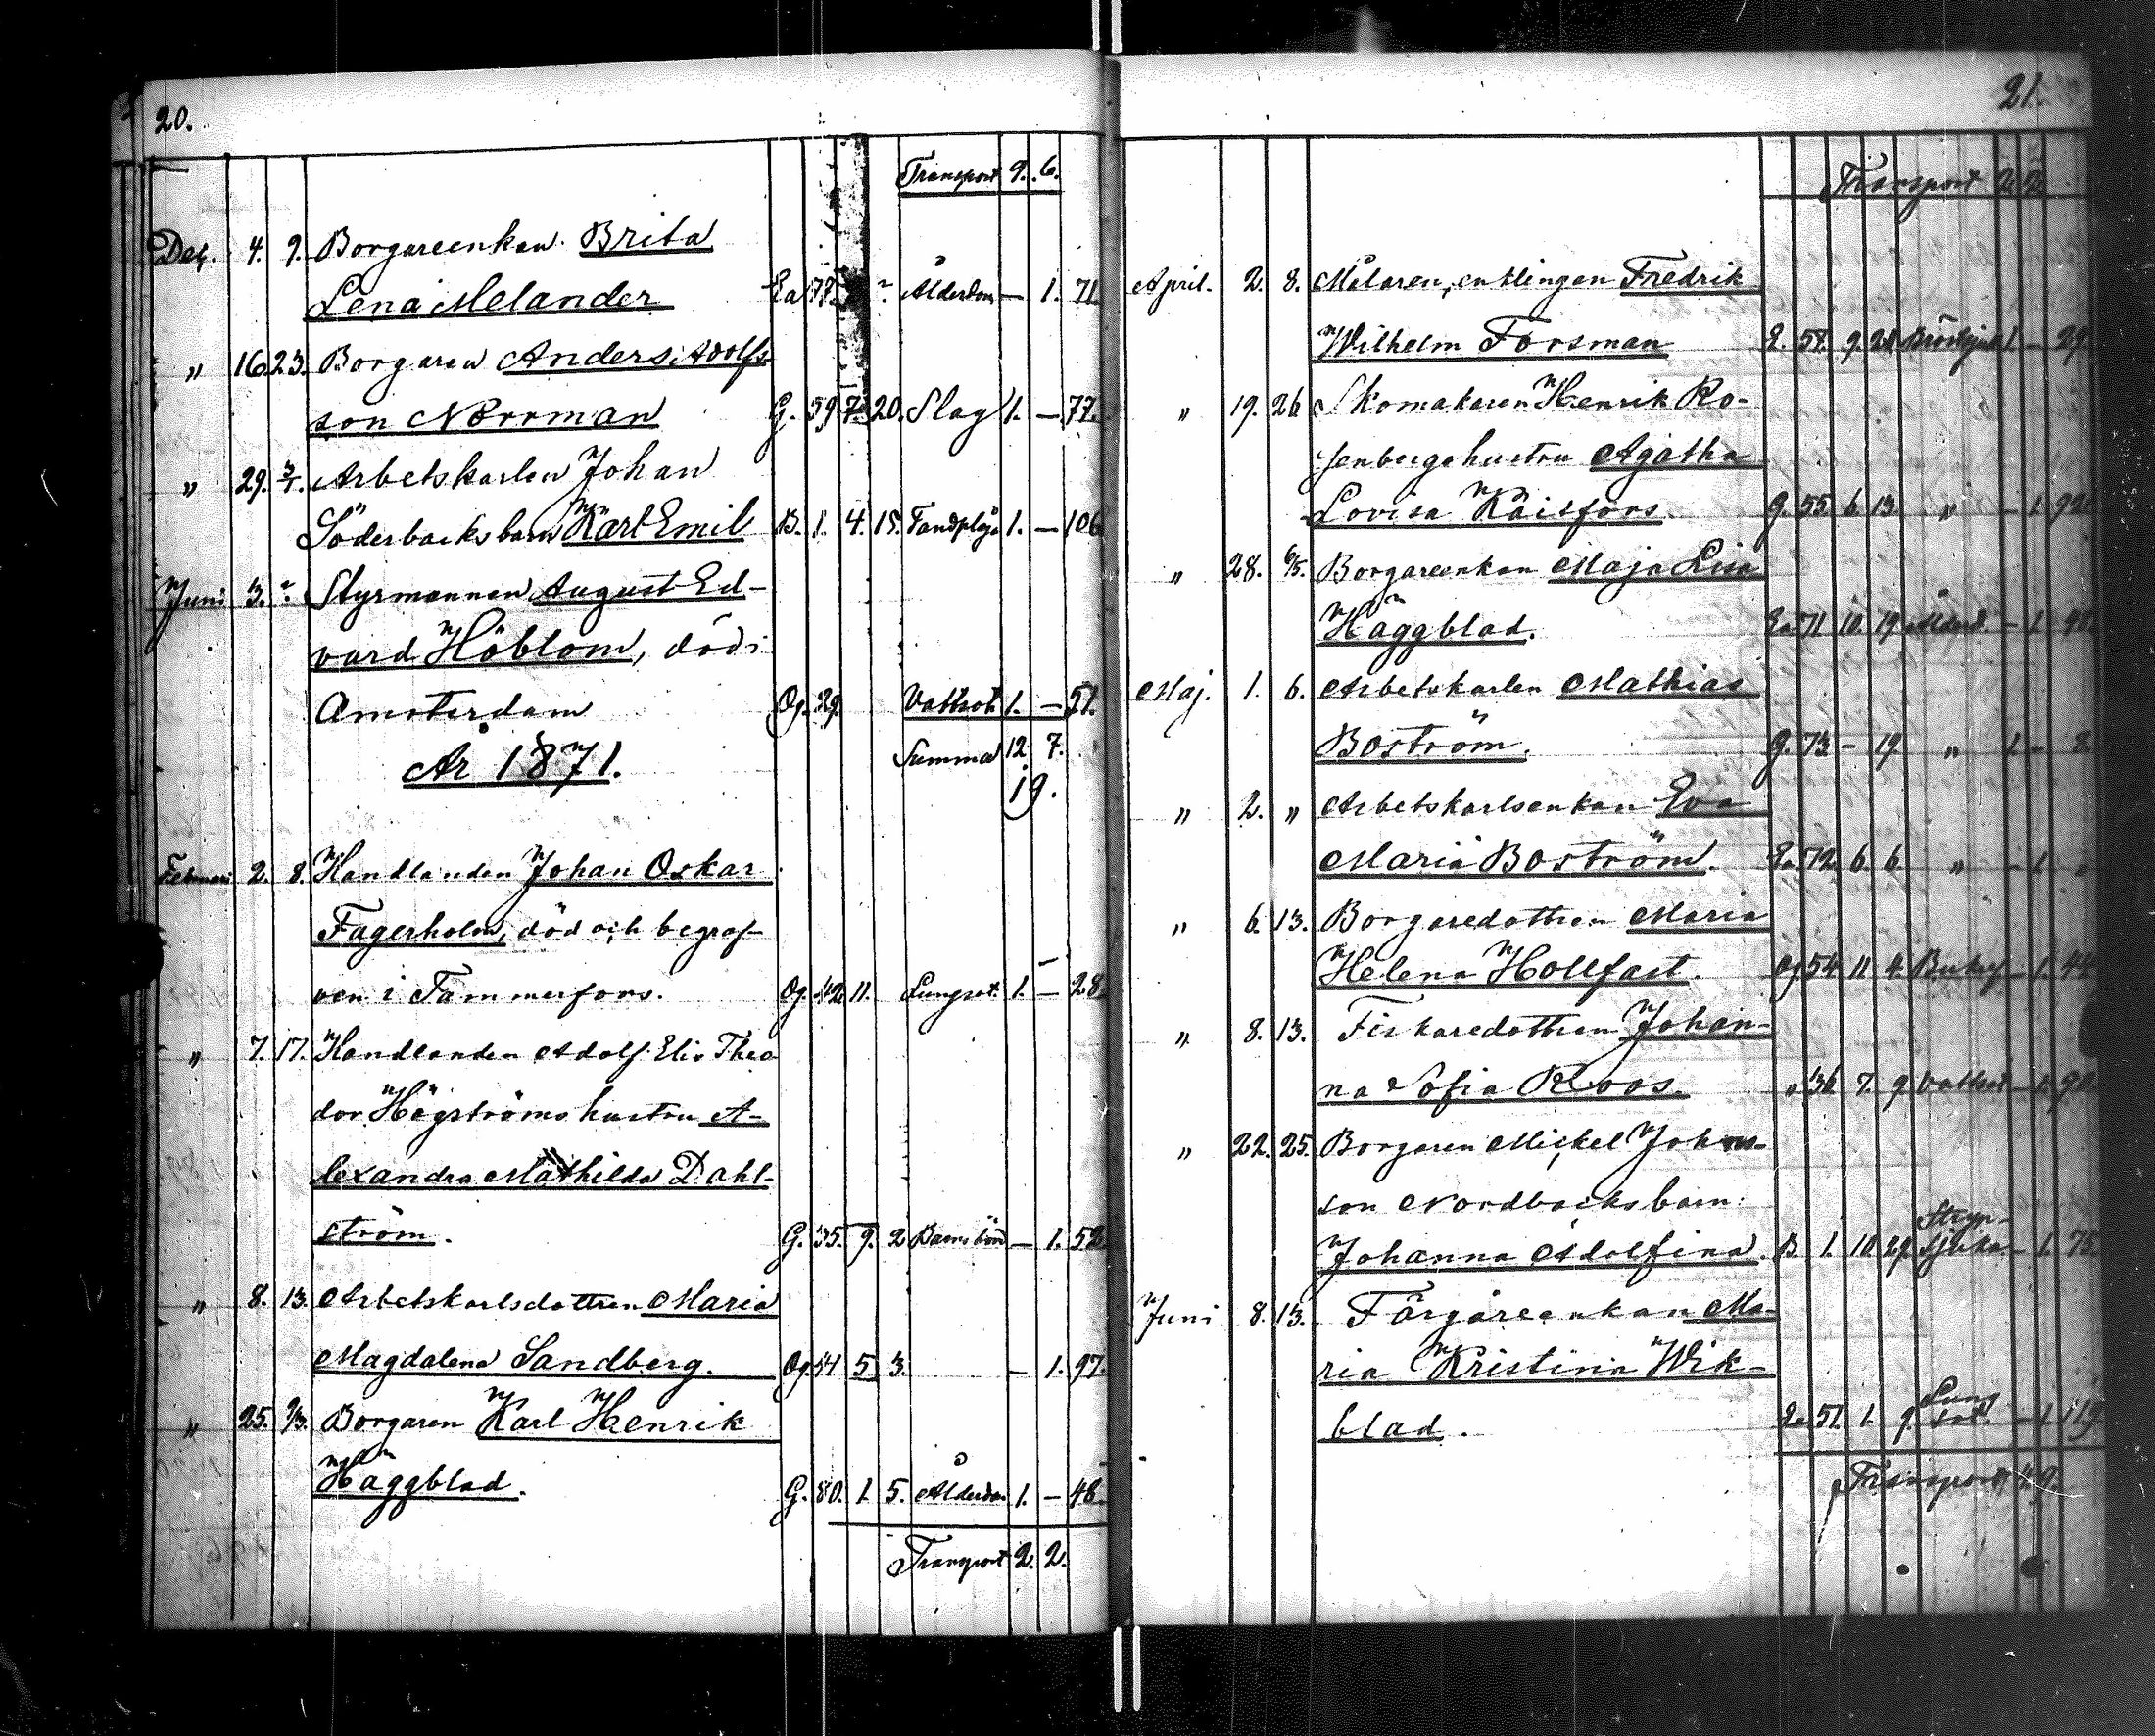 20.
Transport 9. 6.
Dec. 4. 9. Borgareenkan Brita
Lena Melander Ea 77. ” Ålderdom — 1. 71.
” 16. 23. Borgaren Anders Adolfs-
son Norrman G. 59 7. 20. Slag 1. — 77.
” 29. 3/1. Arbetskarlen Johan
Söderbacks barn Karl Emil B. 1. 4. 15. Tandplåga 1. — 106
Juni 3. ” Styrmannen August Ed-
vard Höblom, död i
Amsterdam Og. 29. Vattsot 1. — 51.
Summa 12. 7.
År 1871.
19.
Februari 2. 8. Handlanden Johan Oskar
Fagerholm, död och begraf-
ven i Tammerfors. Og. 42. 11. Lungsot. 1. — 28.
” 7. 17. Handlanden Adolf Elis Theo
dor Högströms hustru A-
lexandra Mathilda Dahl-
ström. G. 35. 9. 2 Barnsbörd — 1. 52
” 8. 13. Arbetskarlsdottren Maria
Magdalena Sandberg. Og. 54 5 3. — 1. 97.
” 25. 9/3. Borgaren Karl Henrik
Häggblad. G. 80. 1. 5. Ålderdom 1. — 48.
Transport 2. 2.
21.
Transport 2. 2.
April. 2. 8. Målaren, enklingen Fredrik
Wilhelm Forsman E. 9. 1. — 29.
” 19. 26 Skomakaren Henrik Ro-
senbergs hustru Agatha
Lovisa Räisfors. G. 55. 6. 13. ” — 1. 92.
” 28. 6/5. Borgareenkan Maja Lisa
Häggblad. Ea 71 10. 19 Ålderd. — 1.
Maj. 1. 6. Arbetskarlen Mathias
Boström. G. 73 — 19. ” 1. — 8.
” 2. ” Arbetskarlsenkan Eva
Maria Boström. Ea. 72. 6. 6. ” — 1. ”
” 6. 13. Borgaredottren Maria
Helena Hollfast. Og 54. 11 4. — 1. 44
” 8. 13. Fiskaredottren Johan-
na Sofia Roos. ” 36 7. 9. Vattsot — 1.
” 22. 25. Borgaren Mickel Johns-
son Nordbacks barn:
Johanna Adolfina. B. 1. 10 29. Stryp-
sjuka — 1. 75.
Juni 8. 13. Färgareenkan Ma-
ria Kristina Wik-
blad. Ea 51. 1. 9. Lung
sot. — 1. 119
Transport 4. 9.